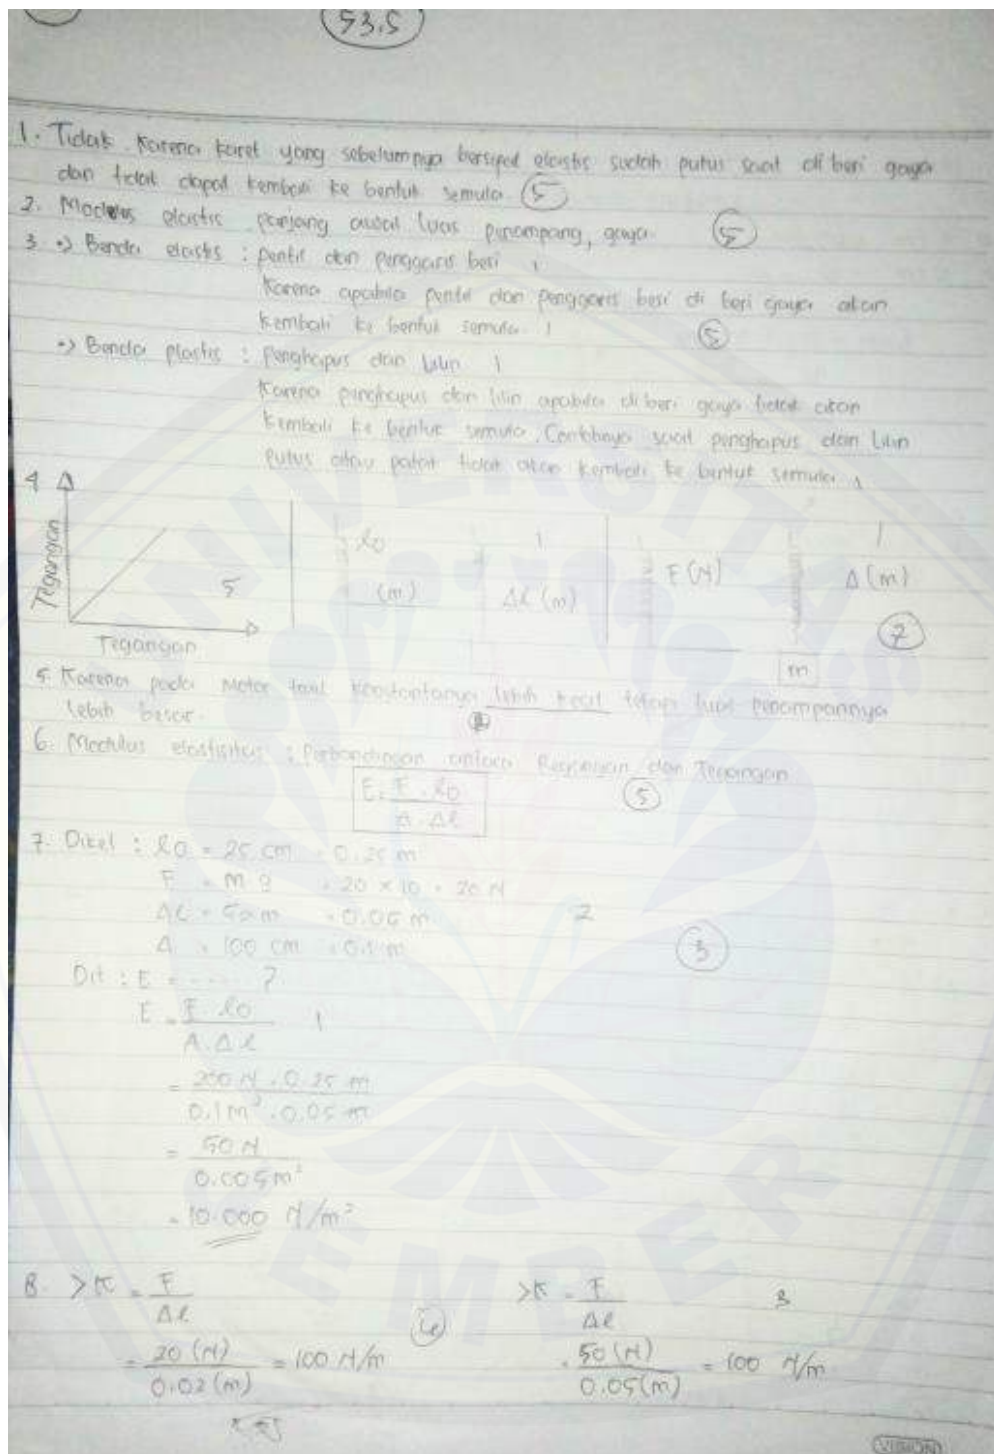 53,5
1. Tidak karena karet yang sebelumnya bersifat elastis sudah putus saat di beri gaya
dan tidak dapat kembali ke bentuk semula 5
2. Modulus elastis panjang awal luas penampang, gaya 5
3 •> Benda elastis : pentil dan penggaris besi 1
Karena apabila pentil dan penggaris besi di beri gaya akan
kembali ke bentuk semula 1 5
•> Benda plastis : Penghapus dan lilin 1
Karena penghapus dan lilin apabila di beri gaya tidak akan
kembali ke bentuk semula. Contohnya saat penghapus dan lilin
putus atau patah tidak akan kembali ke bentuk semula 1
4
Tegangan
Tegangan
5
l0
(m)
1
Δl (m)
F (N)
1
Δ (m)
m
7
5. Karena pada motor trail konstantanya lebih kecil tetapi luas penampannya
lebih besar.
6. Modulus elastisitas : Perbandingan antara Regangan dan Tegangan
E = F . l0
A . Δl
5
7. Diket : l0 = 25 cm = 0.25 m
F = m g = 20 × 10 = 20 N
Δl = 5 cm = 0.05 m 2
A = 100 cm = 0.1 m 3
Dit : E = ..... ?
E = F. l0 1
A. Δl
= 200 N . 0.25 m
0.1 m² . 0.05 m
= 50 N
0.005 m²
= 10.000 N/m²
8. > K = F > K = F 3
Δl Δl
= 20 (N) = 100 N/m = 50 (N) = 100 N/m
0.02 (m) 0.05 (m)
VISION
UNIVERSITAS JEMBER